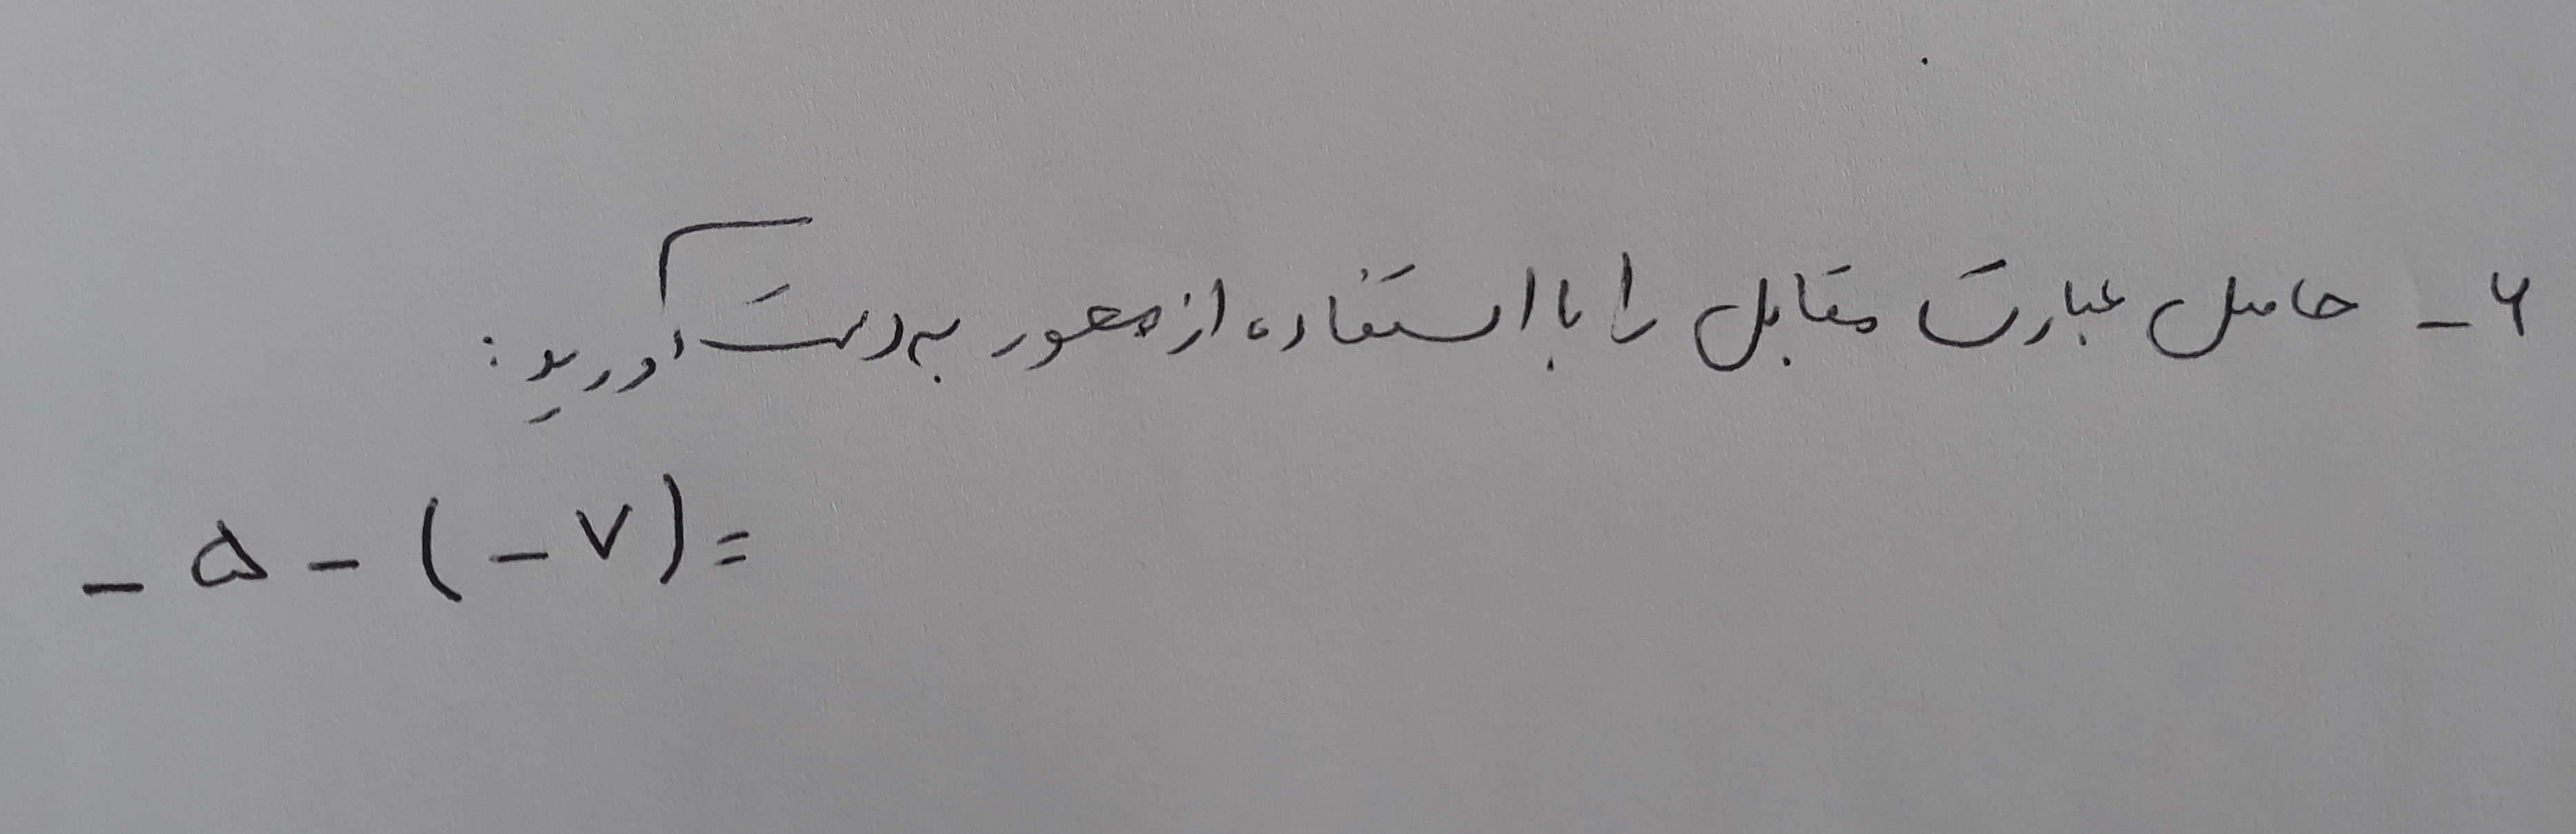 ۶- حاصل عبارت مقابل را با استفاده از محور به دست آورید:
-۵-(-۷)=